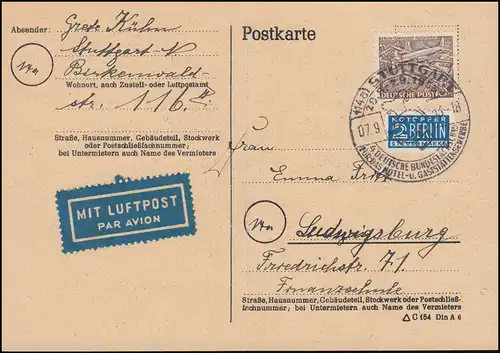 Absender: Grete Kühm
Stuttgart N
14a
Birkenwald
Wohnort, auch Zustell- oder Leitpostamt
str. 116
Straße, Hausnummer, Gebäudeteil, Stockwerk
oder Postschließfachnummer;
bei Untermietern auch Name des Vermieters
MIT LUFTPOST
PAR AVION
Postkarte
DEUTSCHE POST
(14a) STUTTGART
07.9
-18
NOTOPFER
2 BERLIN
STEUERMARKE
4. DEUTSCHE BUNDESFACHSCHAU
HOTEL- U. GASTSTÄTTENGEWERBE
Frau
Emma
14a
Ludwigsburg
Friedrichstr. 71
Finanzschule
Straße, Hausnummer, Gebäudeteil, Stockwerk oder Postschließ-
fachnummer; bei Untermietern auch Name des Vermieters
C 154 Din A 6